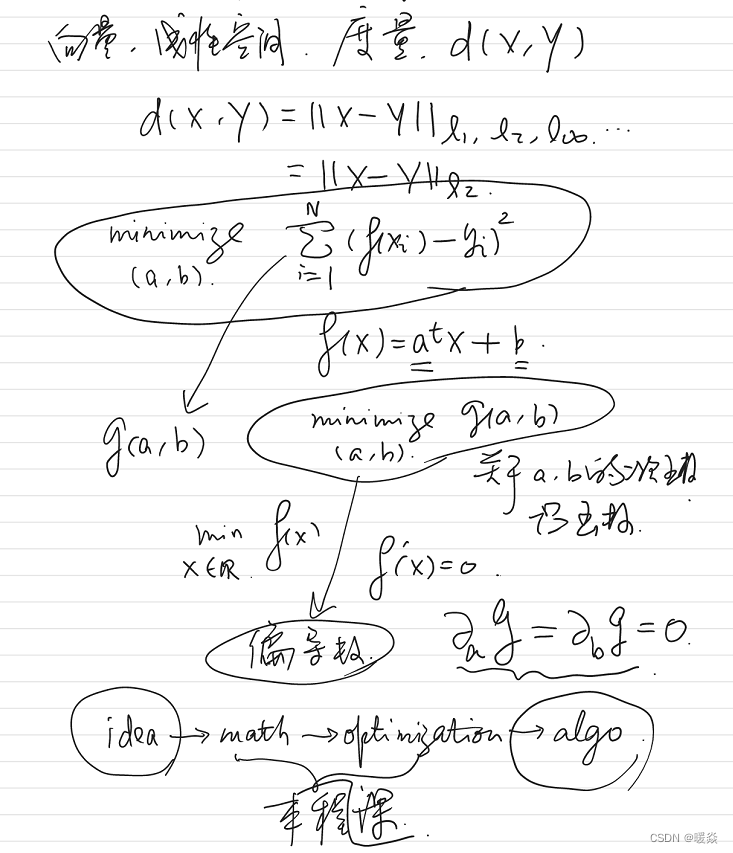 向量，线性空间．度量．d(X,Y)
d(X,Y)=||X-Y||ℓ₁, ℓ₂, ℓ∞. ...
=||X-Y||ℓ₂.
minimize (a,b). \sum_{i=1}^{N} (f(xᵢ)-yᵢ)²
f(x)=aᵗx+b.
g(a,b)
minimize (a,b). g(a,b)
关于a,b的二次函数
凸函数.
min x∈ℝ. f(x)
f'(x)=0.
偏导数.
∂ₐg=∂_b g=0.
idea→math→optimization→algo
本程课.
CSDN @暖焱